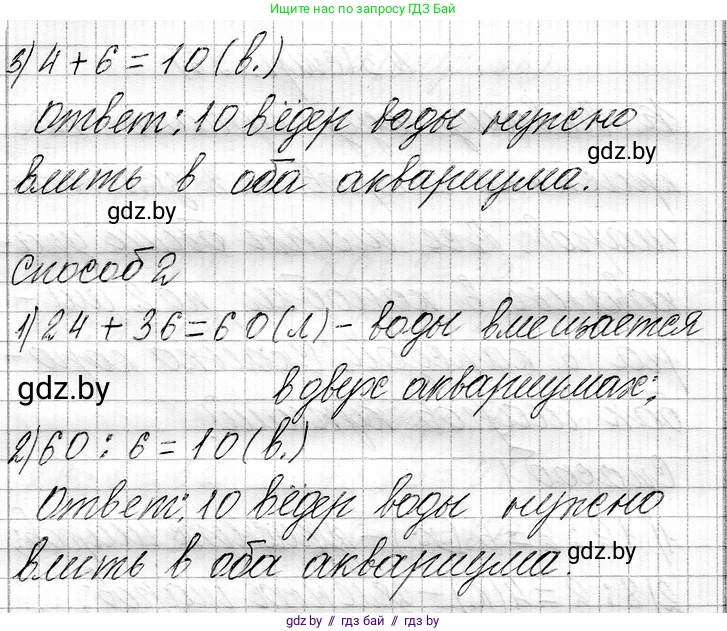 Ищите нас по запросу ГДЗ Бай
3) 4 + 6 = 10 (в.)
Ответ: 10 вёдер воды нужно
gdz.by
влить в оба аквариума.
gdz.by
Способ 2
1) 24 + 36 = 60 (л) - воды вмещается
gdz.by
в двух аквариумах;
2) 60 : 6 = 10 (в.)
Ответ: 10 вёдер воды нужно
влить в оба аквариума.
gdz.by
gdz.by // гдз бай // gdz.by